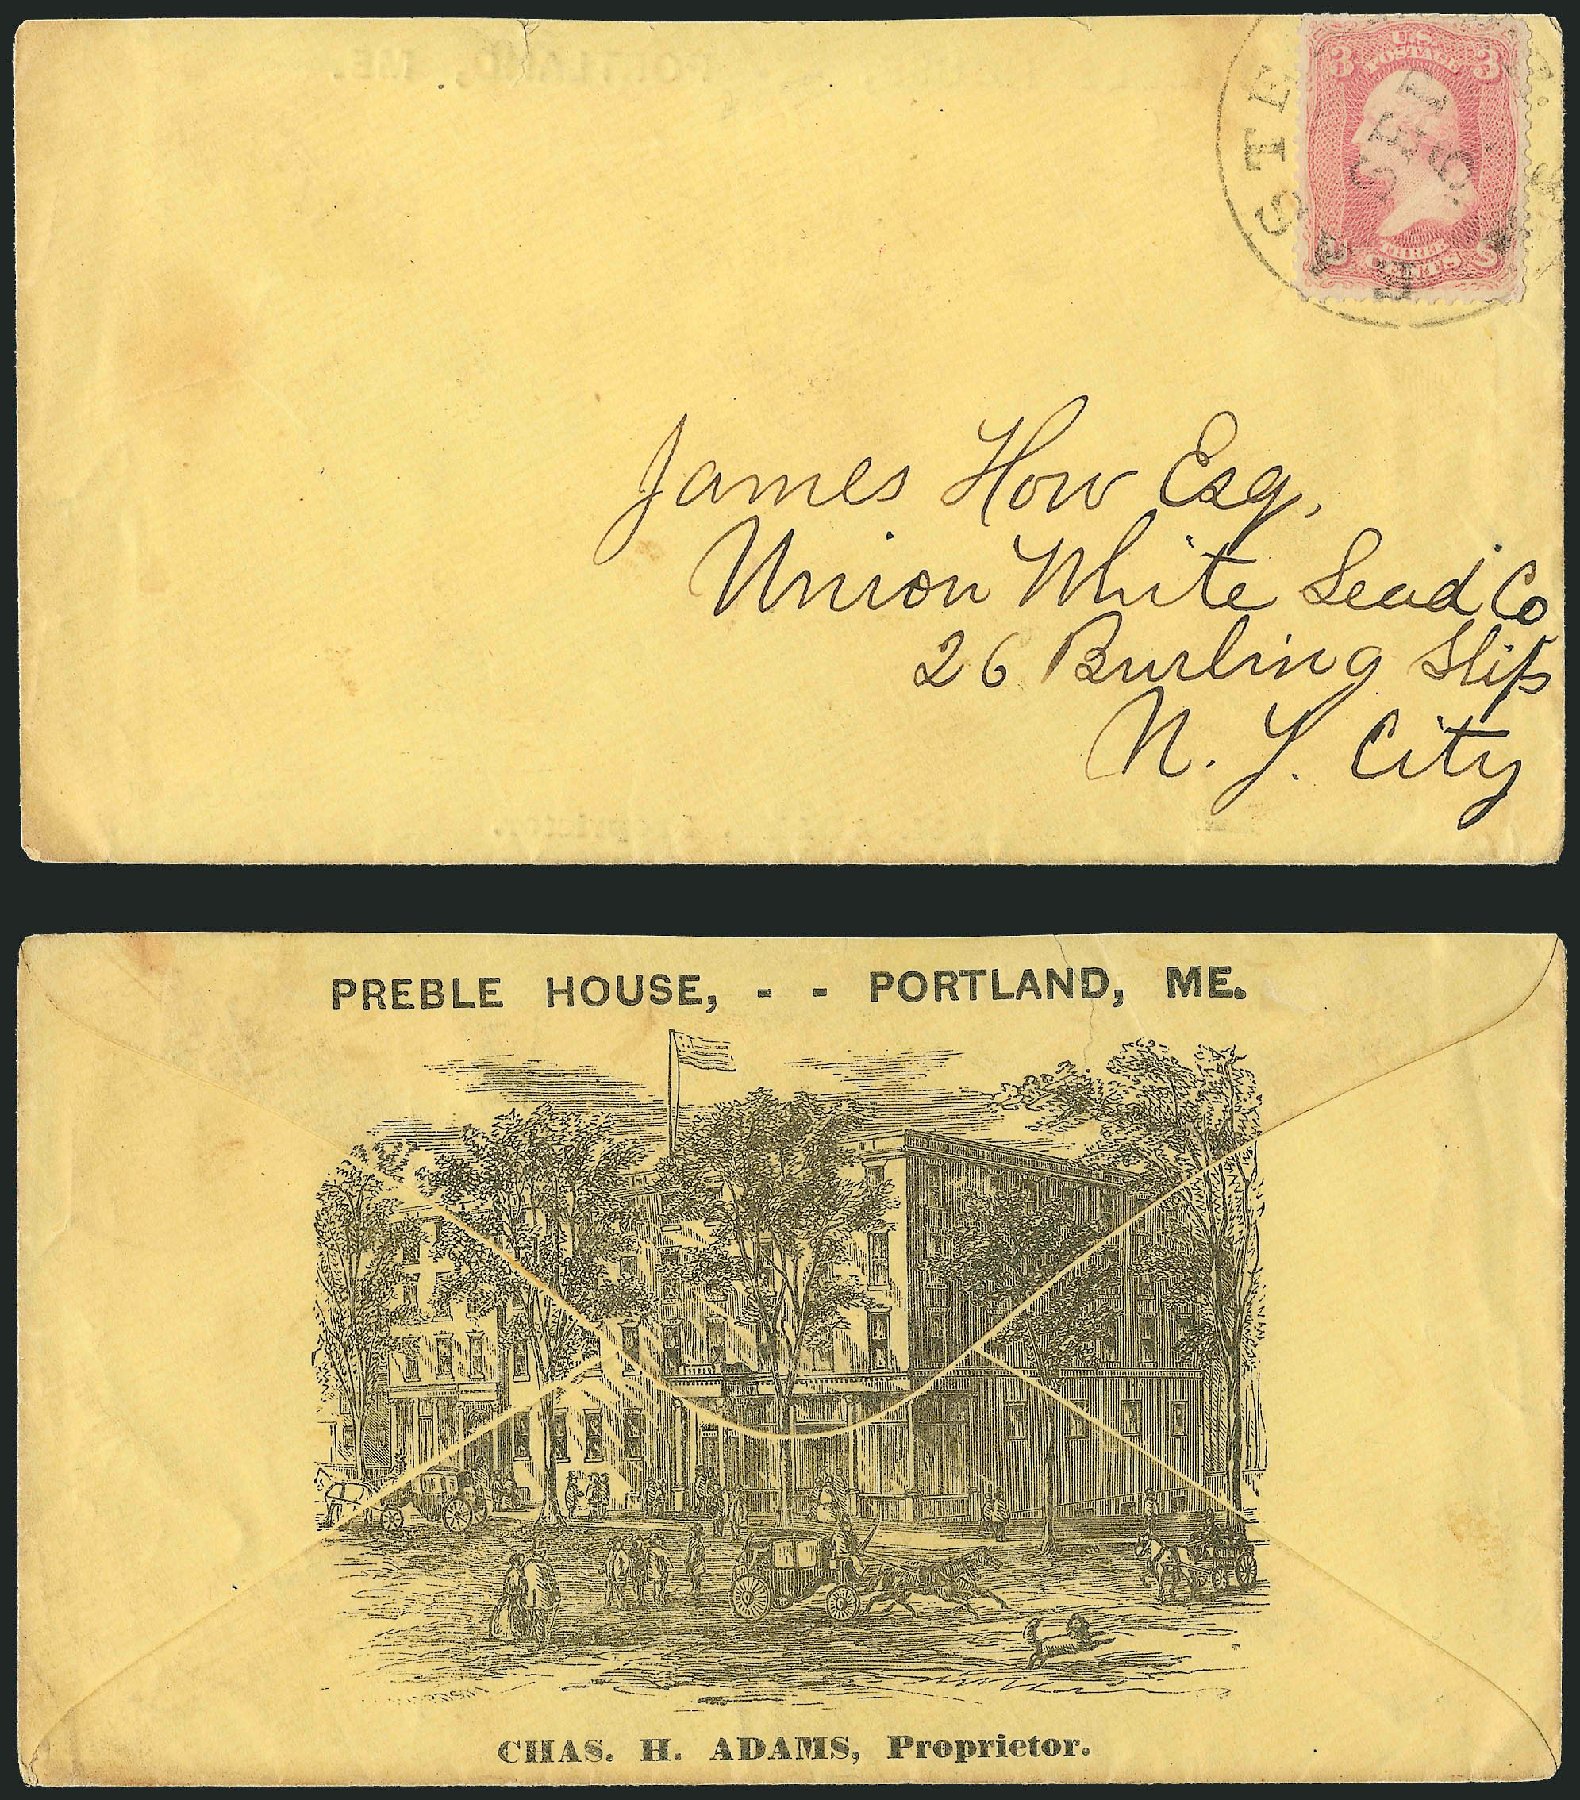 U.S.
POSTAGE
3 3
THREE
CENTS
SEP
James How Esq.
Union White Lead Co
26 Burling Slip
N. Y. City
PREBLE HOUSE, - - PORTLAND, ME.
CHAS. H. ADAMS, Proprietor.